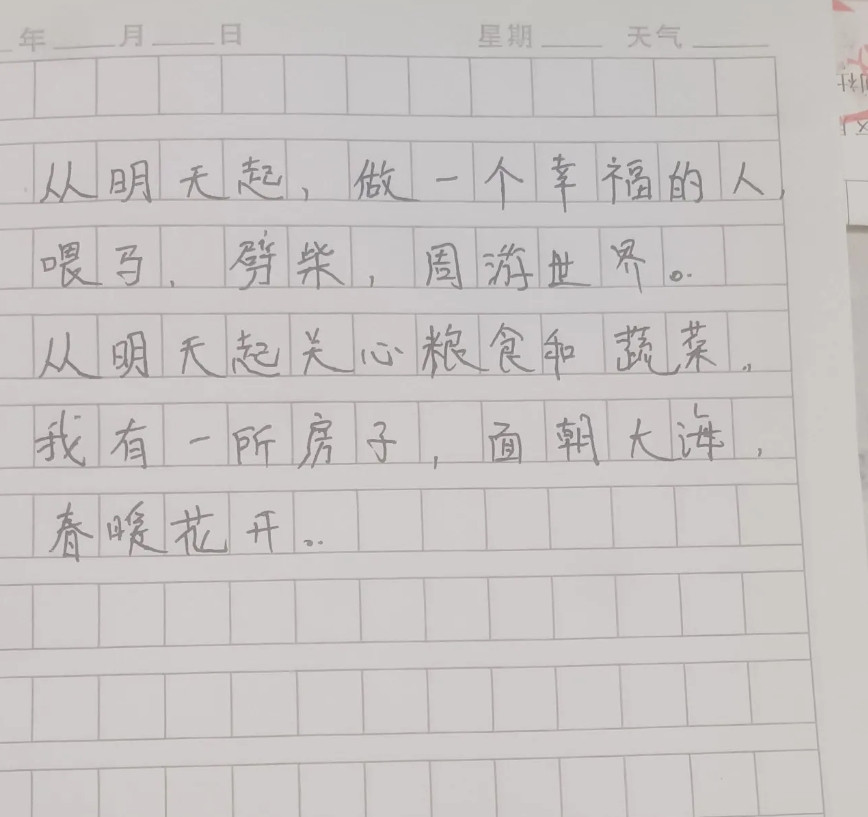 年 月 日 星期 天气
从明天起，做一个幸福的人，
喂马、劈柴，周游世界。
从明天起关心粮食和蔬菜，
我有一所房子，面朝大海，
春暖花开。